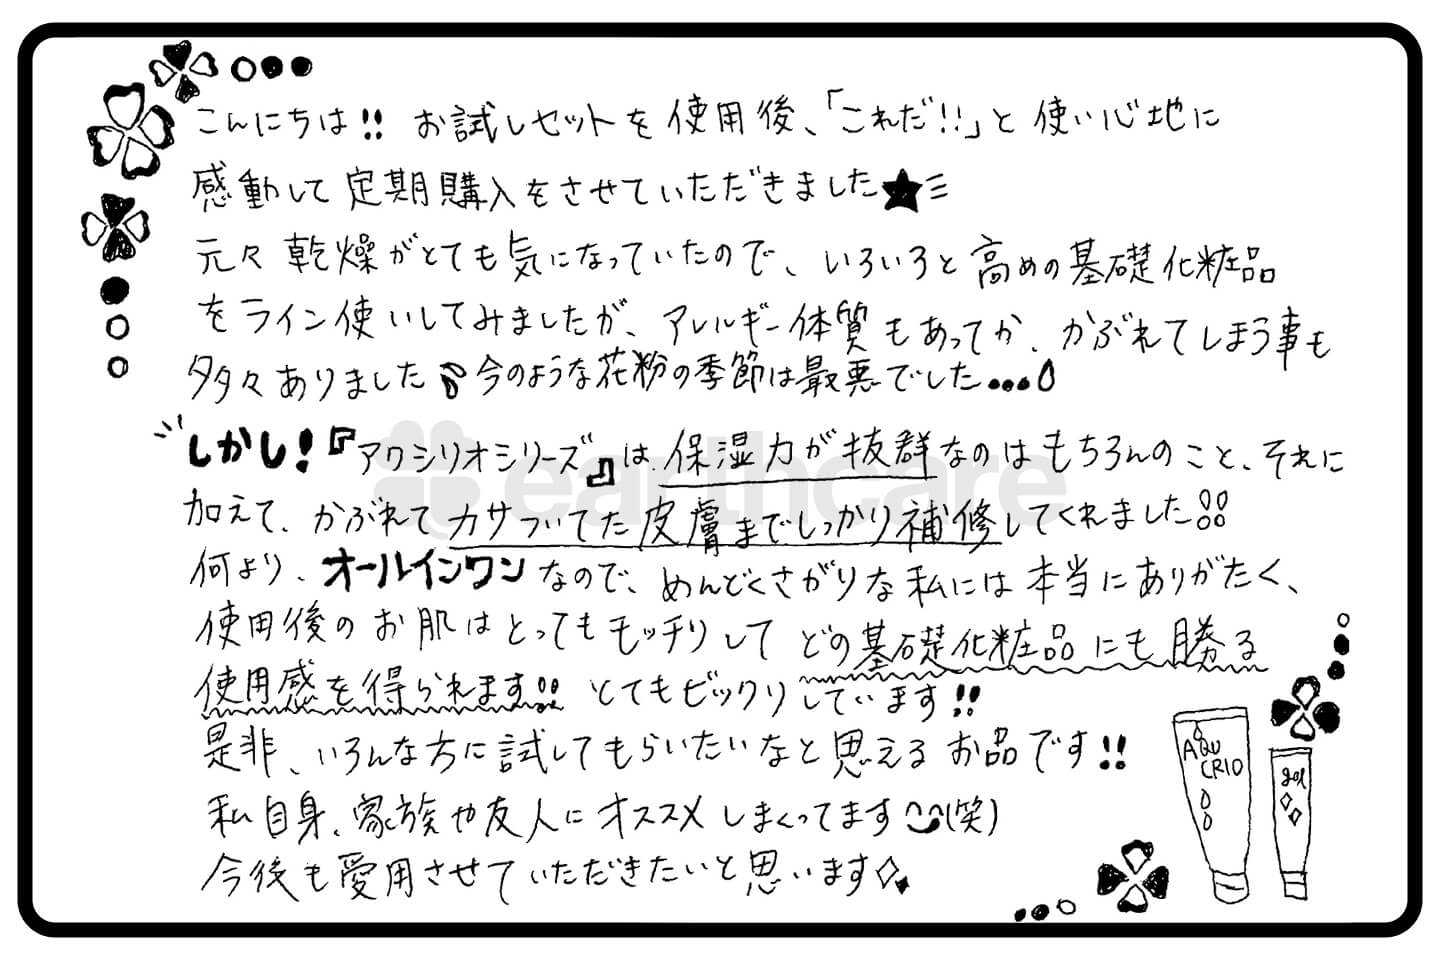 こんにちは!! お試しセットを使用後、「これだ!!」と使い心地に
感動して定期購入をさせていただきました★
元々乾燥がとても気になっていたので、いろいろと高めの基礎化粧品
をライン使いしてみましたが、アレルギー体質もあってか、かぶれてしまう事も
多々ありました 今のような花粉の季節は最悪でした...
しかし!『アクシリオシリーズ』は、保湿力が抜群なのはもちろんのこと、それに
加えて、かぶれてカサついてた皮膚までしっかり補修してくれました!!
何より、オールインワンなので、めんどくさがりな私には本当にありがたく、
使用後のお肌はとってもモッチリしてどの基礎化粧品にも勝る
使用感を得られます!! とてもビックリしています!!
是非、いろんな方に試してもらいたいなと思えるお品です!!
私自身、家族や友人にオススメしまくってます(笑)
今後も愛用させていただきたいと思います
AQU
CRIO
gel
earthcare